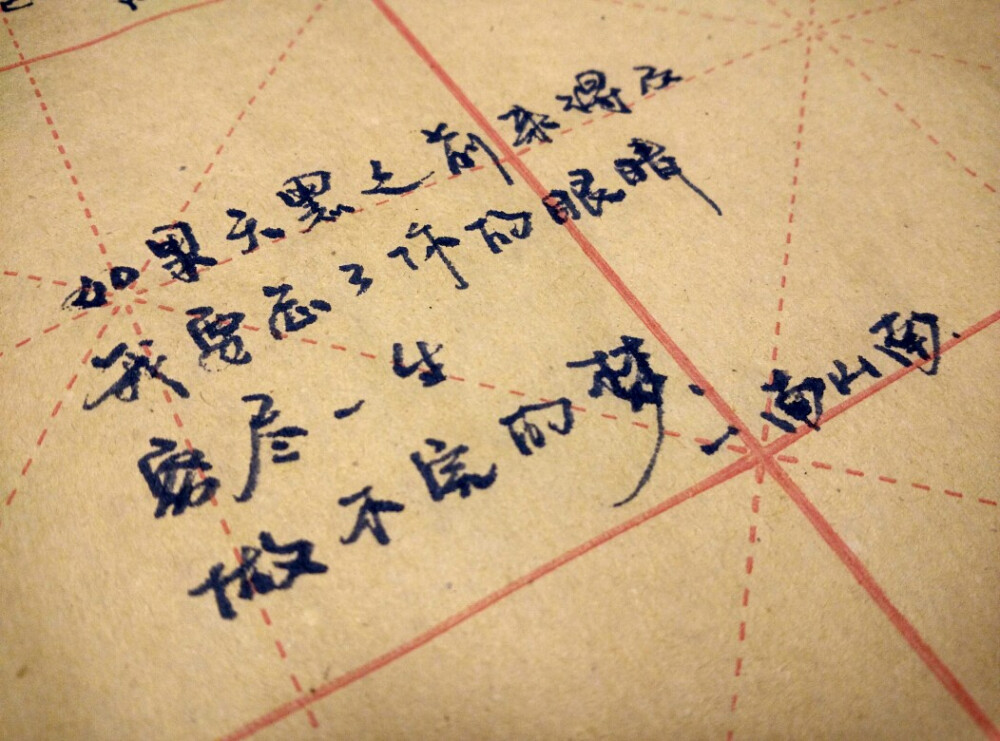 如果天黑之前来得及
我要忘了你的眼睛
穷尽一生
做不完的梦.
—南山南.